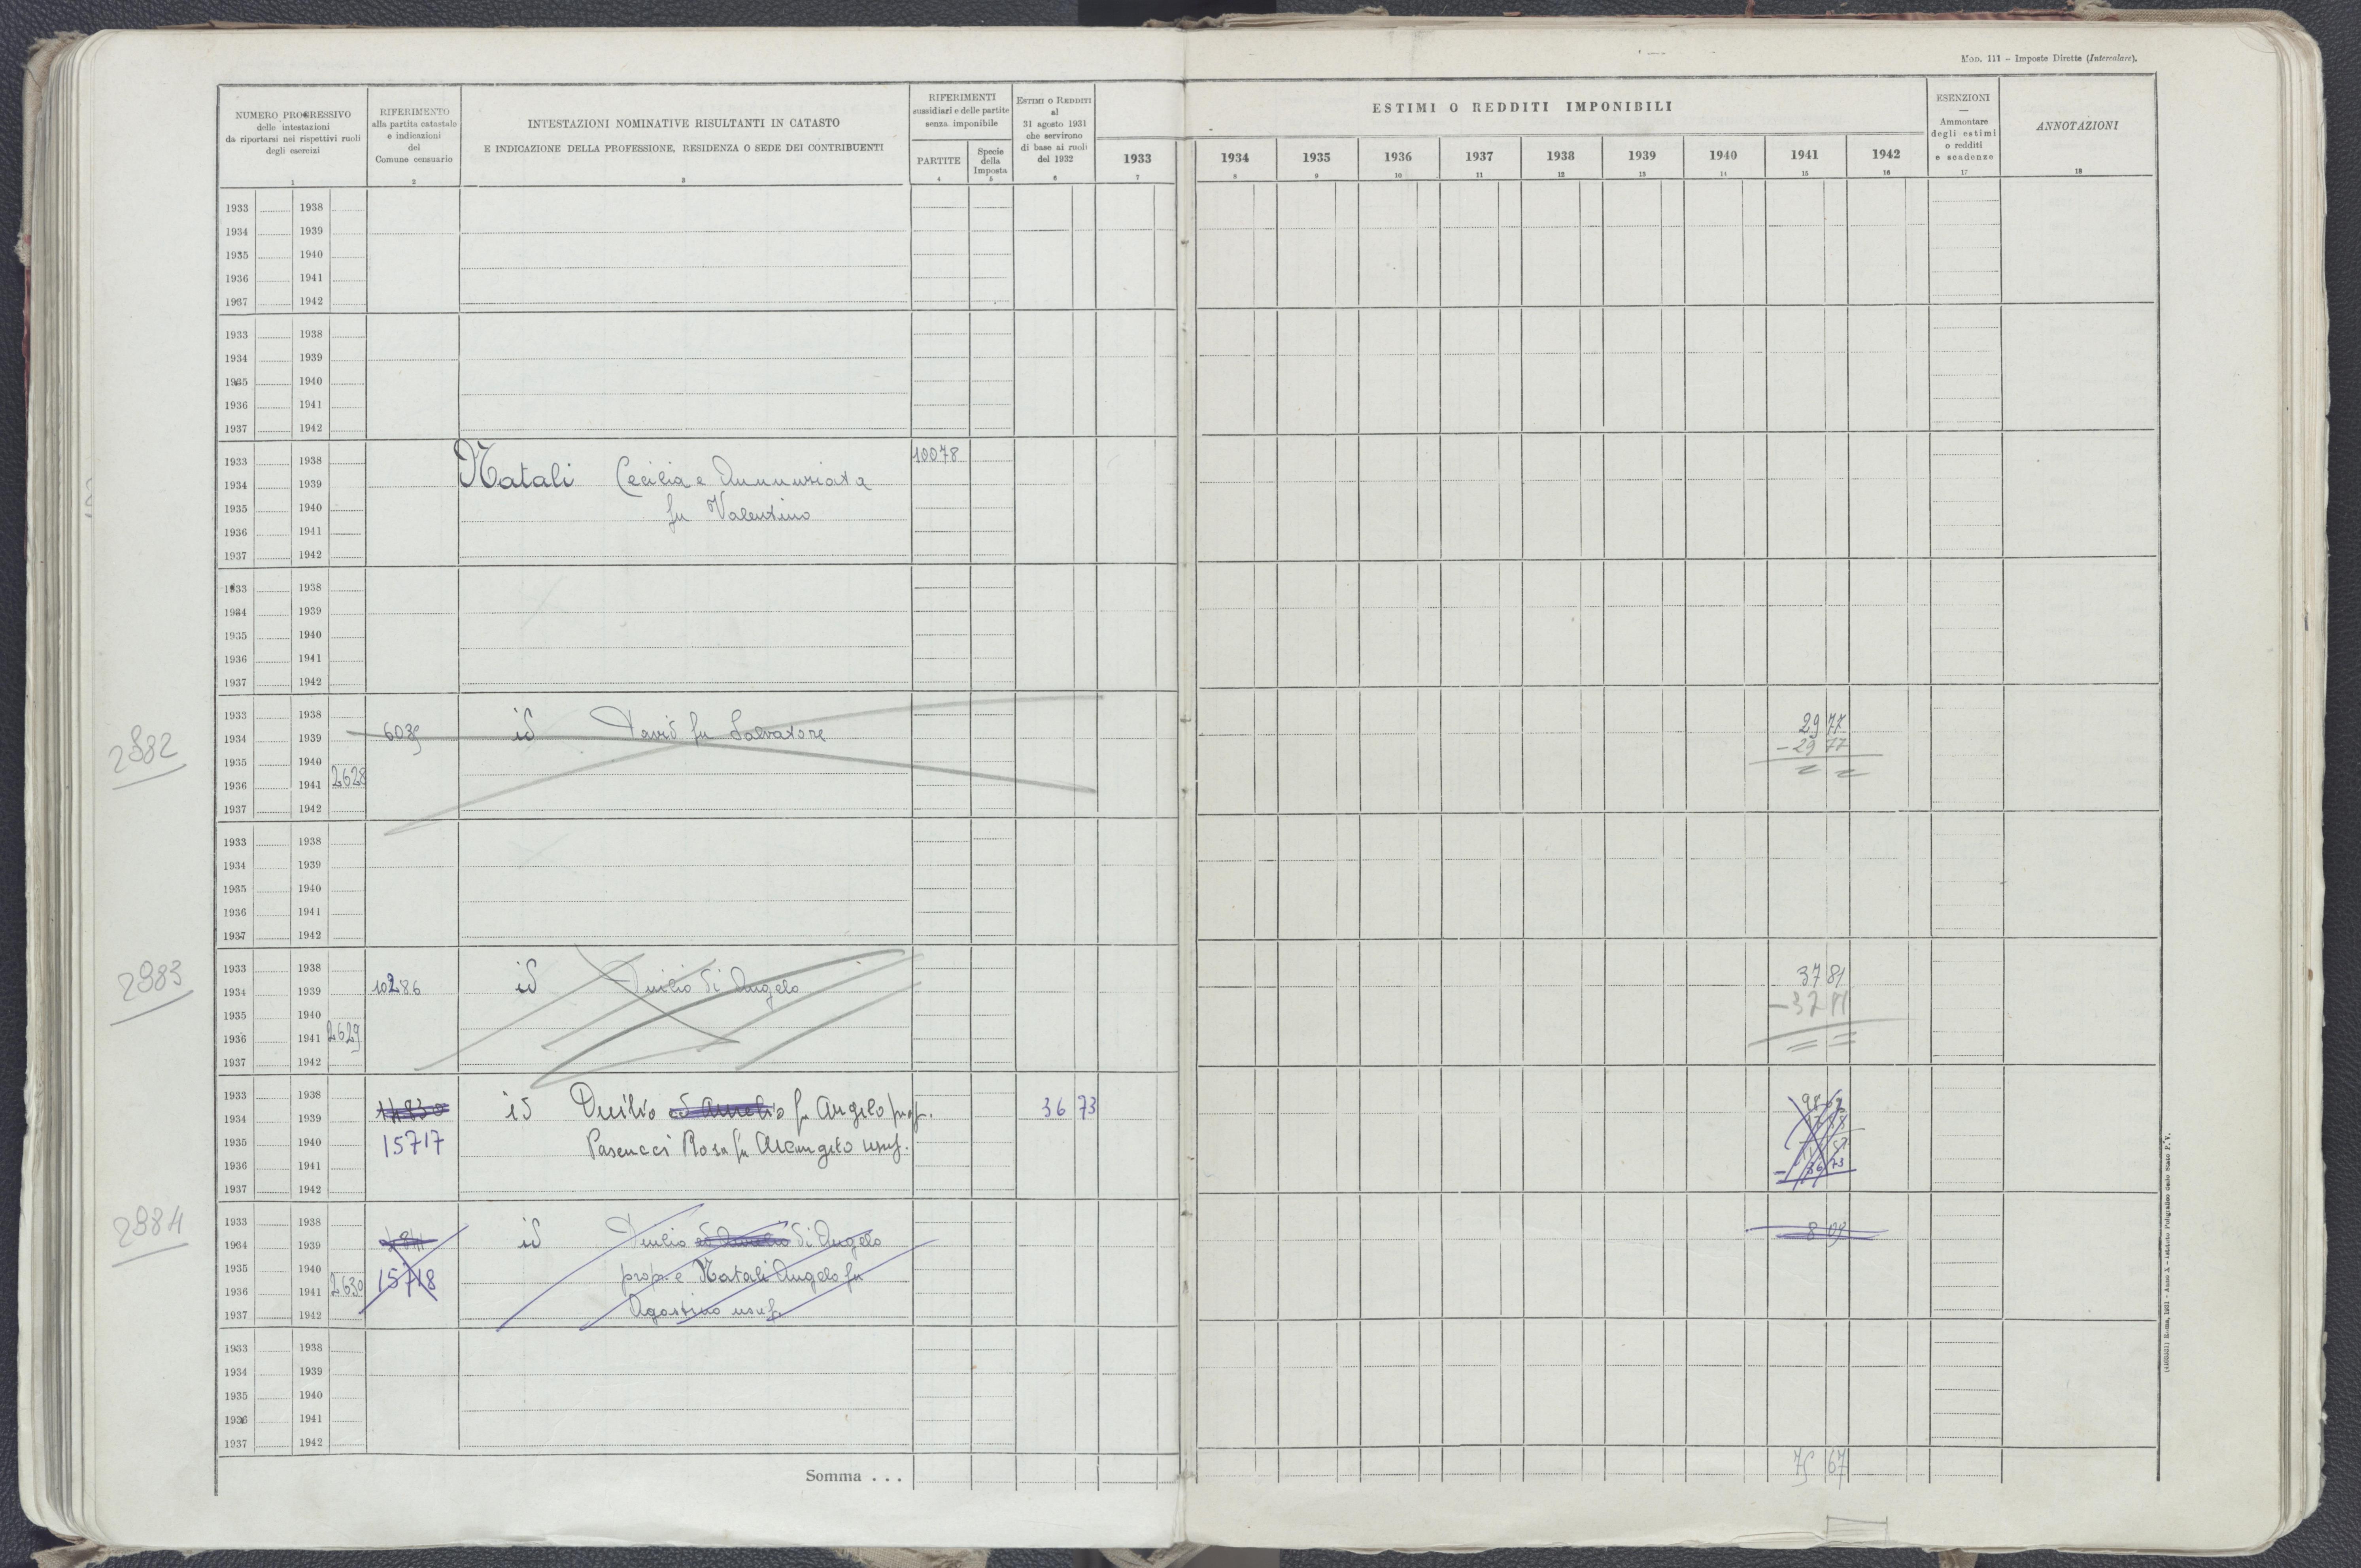 Mod. 111 – Imposte Dirette (Intercalare).
NUMERO PROGRESSIVO
delle intestazioni
da riportarsi nei rispettivi ruoli
degli esercizi
1
RIFERIMENTO
alla partita catastale
e indicazioni
del
Comune censuario
2
INTESTAZIONI NOMINATIVE RISULTANTI IN CATASTO
E INDICAZIONE DELLA PROFESSIONE, RESIDENZA O SEDE DEI CONTRIBUENTI
3
RIFERIMENTI
sussidiari e delle partite
senza imponibile
PARTITE
4
Specie
della
Imposta
5
ESTIMI O REDDITI
al
31 agosto 1931
che servirono
di base ai ruoli
del 1932
6
ESTIMI O REDDITI IMPONIBILI
1933 1934 1935 1936 1937 1938 1939 1940 1941 1942
7 8 9 10 11 12 13 14 15 16
ESENZIONI
—
Ammontare
degli estimi
o redditi
e scadenze
17
ANNOTAZIONI
18
1933 1938
1934 1939
1935 1940
1936 1941
1937 1942
1933 1938
1934 1939
1935 1940
1936 1941
1937 1942
1933 1938 10078
1934 1939 Natali Cecilia e Annunziata
1935 1940 fu Valentino
1936 1941
1937 1942
1933 1938
1934 1939
1935 1940
1936 1941
1937 1942
1933 1938 29 77
2982 1934 1939 6039 id David fu Salvatore – 29 77
1935 1940
1936 1941 2628
1937 1942
1933 1938
1934 1939
1935 1940
1936 1941
1937 1942
2983 1933 1938 37 81
1934 1939 10286 id Duilio di Angelo – 37 81
1935 1940
1936 1941 2629
1937 1942
1933 1938
1934 1939 id Duilio ed Aurelio fu Angelo prop. 36 73
1935 1940 15717 Pascucci Rosa fu Arcangelo usuf.
1936 1941 – 36 73
1937 1942
2984 1933 1938 8 09
1934 1939 id Duilio ed Aurelio di Angelo
1935 1940 15718 prop. e Natali Angelo fu
1936 1941 2630
1937 1942 Agostino usuf.
1933 1938
1934 1939
1935 1940
1936 1941
1937 1942
Somma . . . 75 67